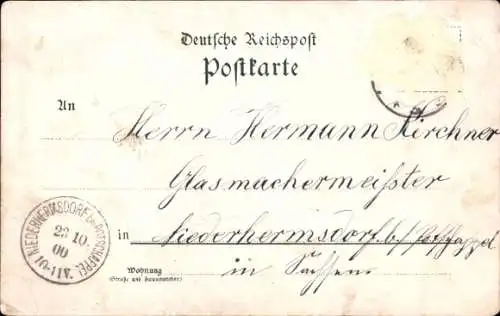 Deutsche Reichspost
Postkarte
An
Herrn Hermann Kirchner
Glasmachermeister
in Niederhermsdorf b/ Potschappel
in Sachsen
Wohnung
(Straße und Hausnummer)
NIEDERHERMSDORF Bz. POTSCHAPPEL
23 10.
00
10-11V.